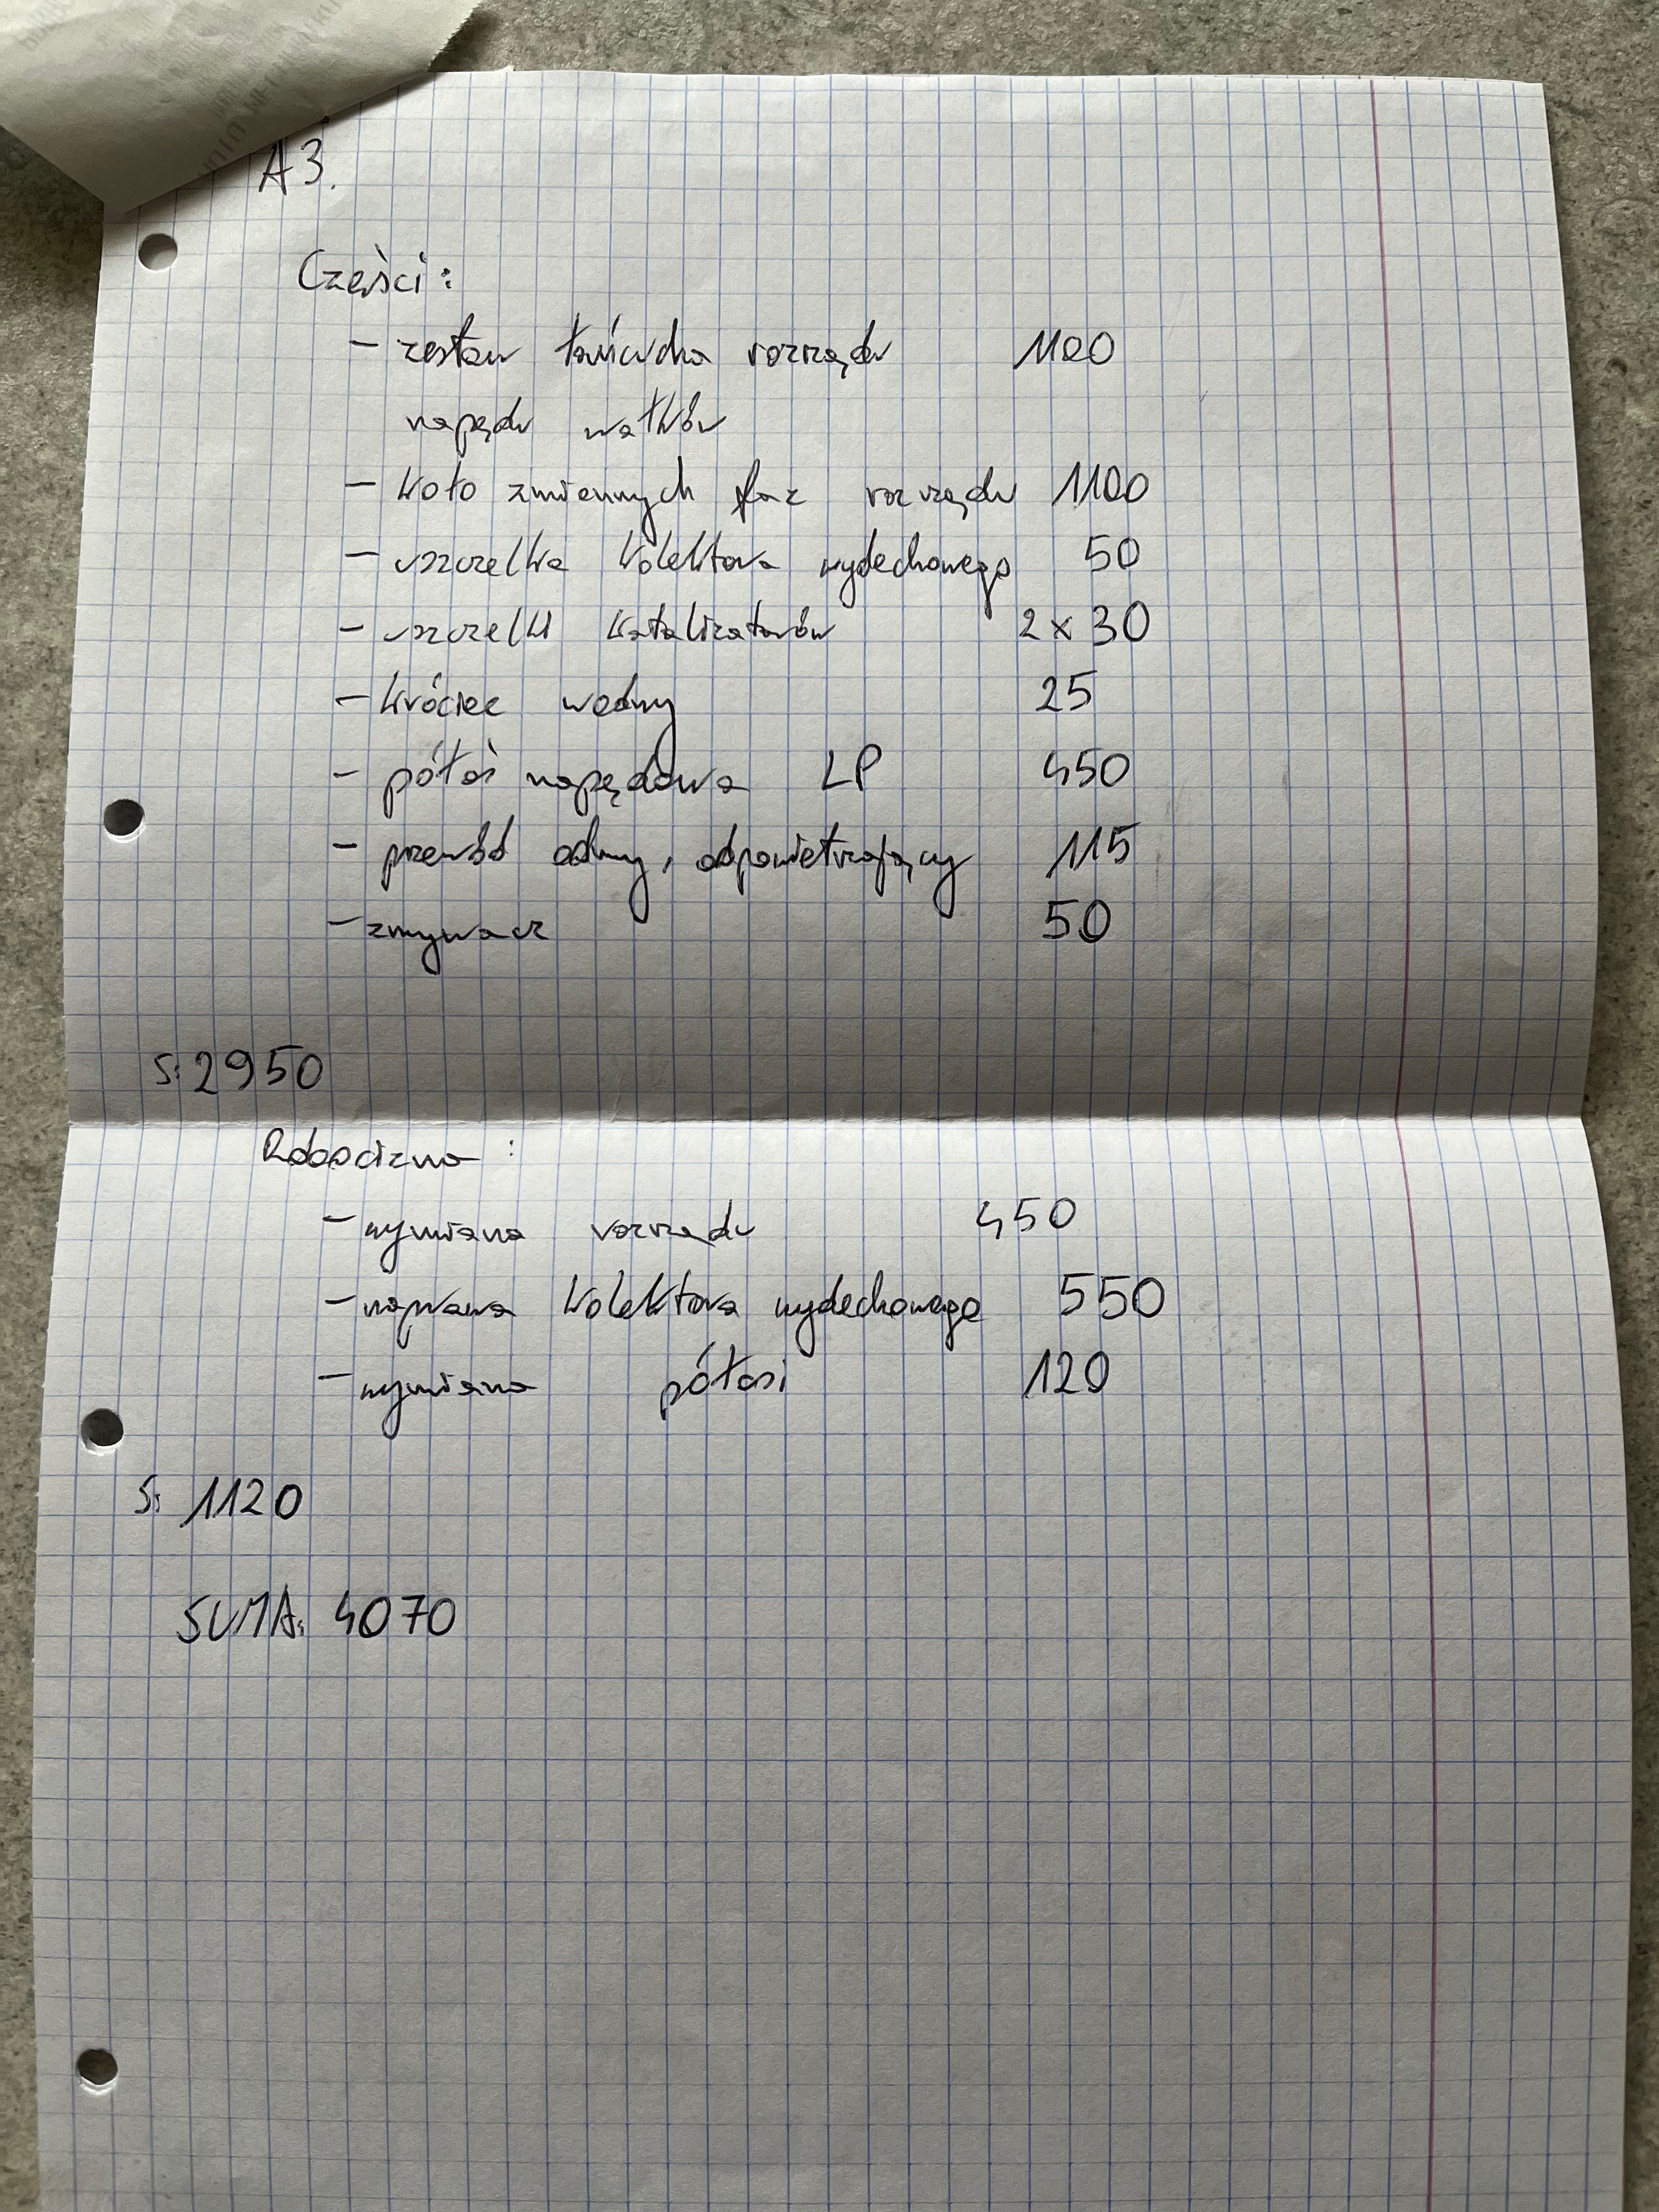 A3.
Części:
- zestaw łańcucha rozrządu 1100
napędu wałków
- koło zmiennych faz rozrządu 1100
- uszczelka kolektora wydechowego 50
- uszczelki katalizatorów 2 x 30
- króciec wodny 25
- półoś napędowa LP 450
- przewód odmy, odpowietrzający 115
- zmywacz 50
S: 2950
Robocizna:
- wymiana rozrządu 450
- naprawa kolektora wydechowego 550
- wymiana półosi 120
S: 1120
SUMA: 4070